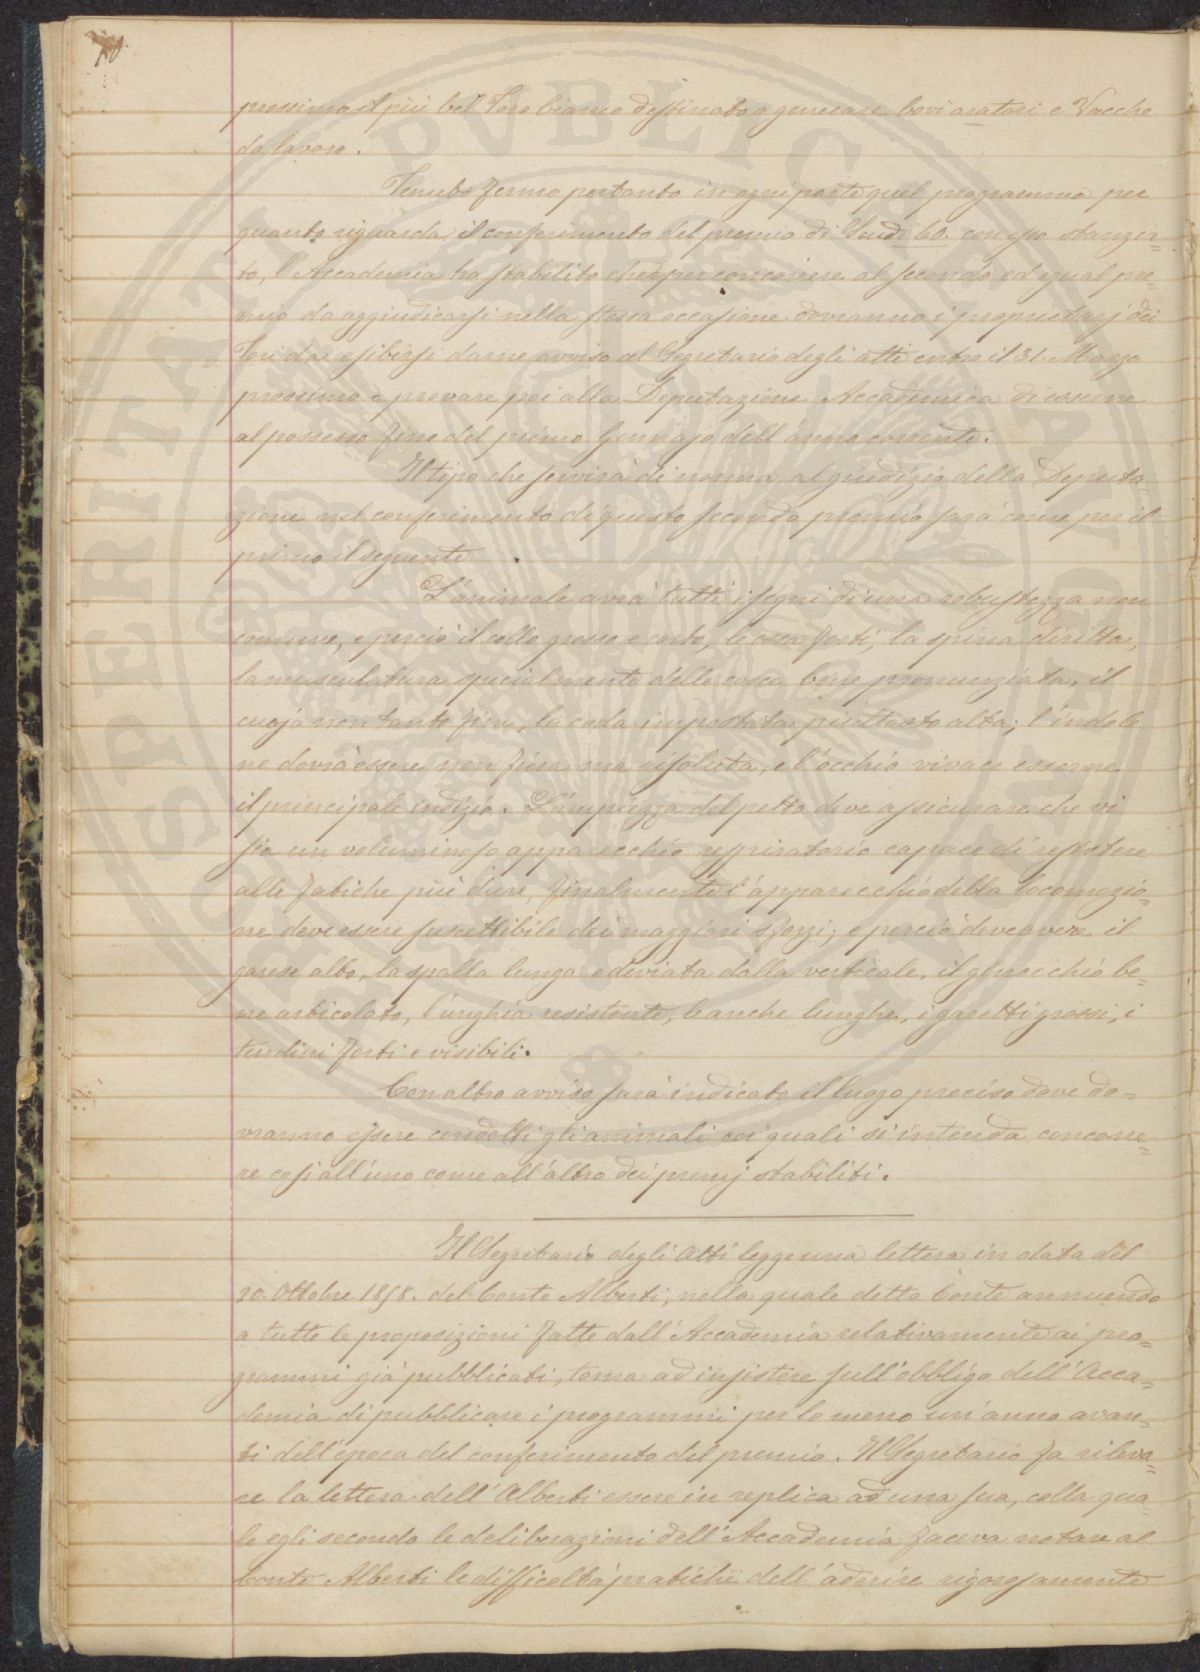 70.
prossimo il più bel Toro bianco destinato a generare bovi aratori e Vacche
da lavoro.
Tenuto fermo pertanto in ogni parte quel programma per
quanto riguarda il conferimento del premio di Scudi 60. con esso stanzia=
to, l'Accademia ha stabilito che per concorrere al secondo ed egual pre=
mio da aggiudicarsi nella stessa occasione dovranno i proprietarj dei
Tori da esibirsi darne avviso al Segretario degli atti entro il 31. Marzo
prossimo e provare poi alla Deputazione Accademica di esserne
al possesso fino del primo Gennajo dell'anno corrente.
Il tipo che servirà di norma al giudizio della Deputa=
zione nel conferimento di questo secondo premio sarà come per il
primo il seguente
L'animale avrà tutti i segni di una robustezza non
comune, e perciò il collo grosso e corto, le ossa forti, la spina diritta,
la musculatura specialmente delle coscie bene pronunziata, il
cuojo non tanto fino, la coda impostata piuttosto alta; l'indole
ne dovrà essere non fiera ma risoluta, e l'occhio vivace esserne
il principale indizio. L'ampiezza del petto deve assicurare che vi
sia un voluminoso apparecchio respiratorio capace di resistere
alle fatiche più dure, finalmente l'apparecchio della locomozio=
ne deve essere suscettibile dei maggiori sforzi; e perciò deve avere il
garese alto, la spalla lunga e deviata dalla verticale, il ginocchio be=
ne articolato, l'unghia resistente, le anche lunghe, i garetti grossi, i
tendini forti e visibili.
Con altro avviso sarà indicato il luogo preciso dove do=
vranno essere condotti gli animali coi quali si intenda concorre=
re così all'uno come all'altro dei premj stabiliti.
Il Segretario degli Atti legge una lettera in data del
20. Ottobre 1858. del Conte Alberti, nella quale detto Conte annuendo
a tutte le proposizioni fatte dall'Accademia relativamente ai pro=
grammi già pubblicati, torna ad insistere sull'obbligo dell'Acca=
demia di pubblicare i programmi per lo meno un'anno avan=
ti dell'epoca del conferimento del premio. Il Segretario fa rileva=
re la lettera dell'Alberti essere in replica ad una sua, colla qua
le egli secondo le deliberazioni dell'Accademia faceva notare al
Conte Alberti le difficoltà pratiche dell'aderire rigorosamente
PROSPERITATI PVBLICAE AVGENDAE